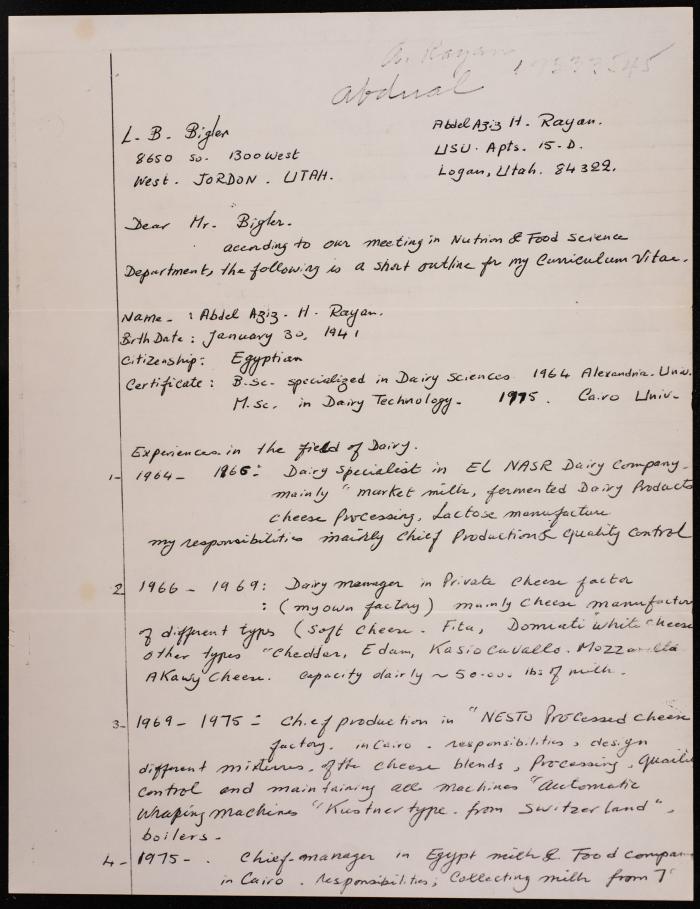 A. Rayan
Abdual
L. B. Bigler
8650 so. 1300 West
West. JORDON. UTAH.
Abdel Aziz H. Rayan.
USU. Apts. 15-D.
Logan, Utah. 84322.
Dear Mr. Bigler.
according to our meeting in Nutrion & Food Science
Department, the following is a short outline for my Curriculum Vitae.
Name - : Abdel Aziz - H - Rayan.
Birth Date : January 30, 1941
Citizenship: Egyptian
Certificate : B.Sc. specialized in Dairy Sciences 1964 Alexandria. Univ.
M.Sc. in Dairy Technology. 1975. Cairo Univ.
Experiences in the field of Dairy.
1- 1964 - 1966: Dairy Specialist in EL NASR Dairy Company.
mainly "market milk, fermented Dairy Products
cheese Processing, Lactose manufacture
my responsibilities mainly chief Production & quality control
2 1966 - 1969: Dairy manager in Private cheese factor
: (my own factory) mainly cheese manufactur
of different types (Soft cheese. Fita, Domiati "white cheese
other types "Cheddar, Edam, Kasio Cavallo. Mozzarella
AKawy Cheese. Capacity dairly ~ 50.000 lbs of milk.
3- 1969 - 1975 = Chief production in "NESTO Processed cheese
factory. in Cairo. responsibilities, design
different mixtures of the cheese blends, Processing,
control and maintaining all machines "Automatic
Wraping machines "Kustner type. from Switzerland",
boilers -
4- 1975 - . Chief-manager in Egypt milk & Food compan
in Cairo. responsibilities; Collecting milk from